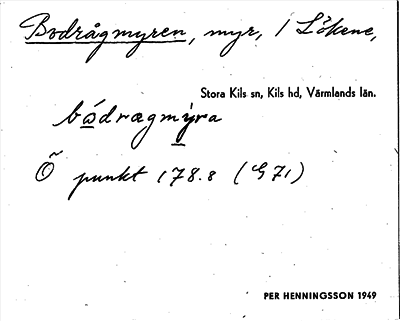 Bodrågmyren, myr, i Lökene,
Stora Kils sn, Kils hd, Värmlands län.
bo̱dragmy̱ra
Õ punkt 178.8 (G 71)
PER HENNINGSSON 1949